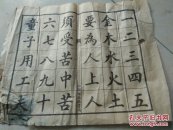 一二三四五
金木水火土
要為人上人
須受苦中苦
六七八九十
童子用工夫